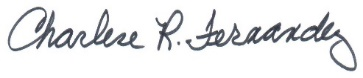 Charlese R. Fernandez